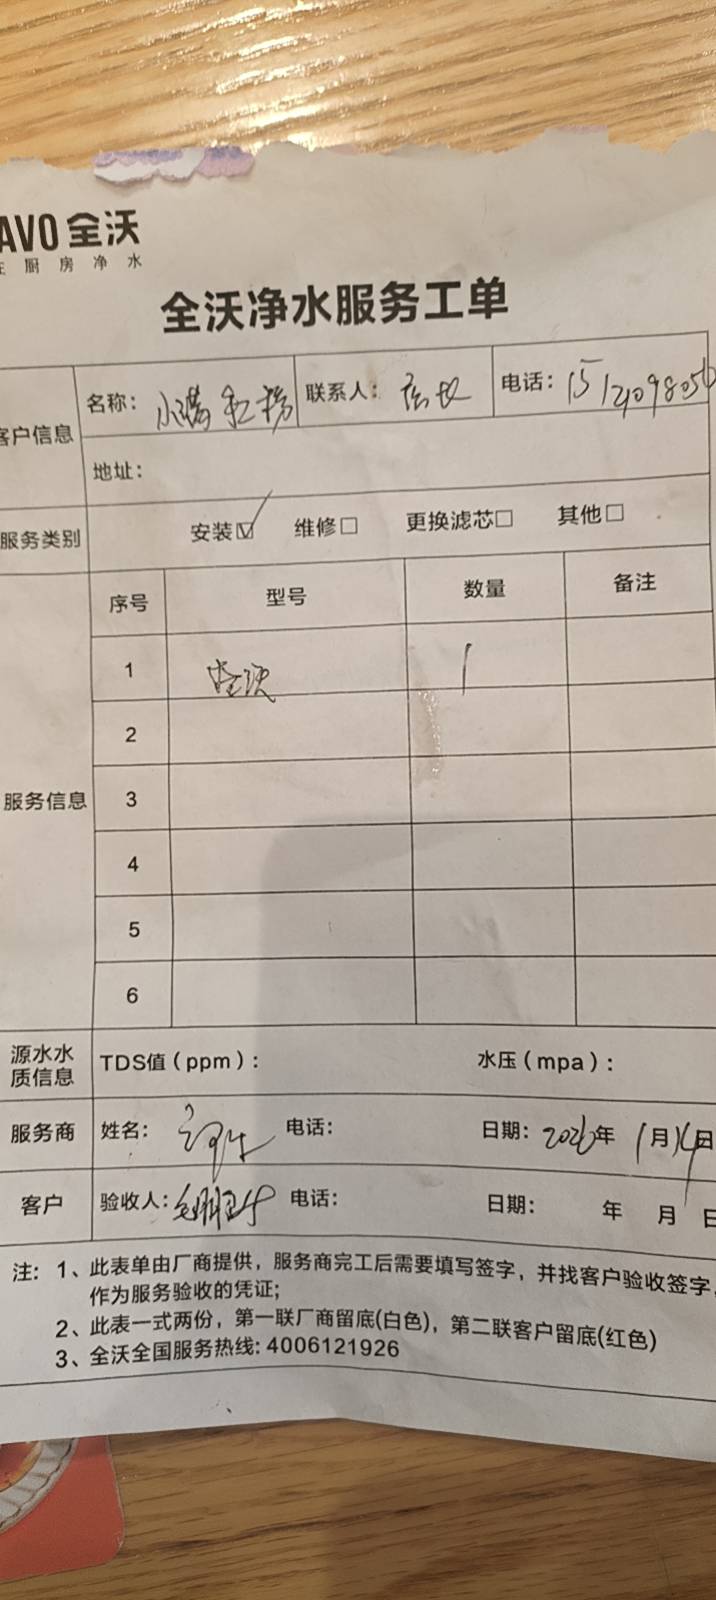 AVO 全沃
在厨房净水
全沃净水服务工单
客户信息
名称： 联系人： 店长 电话：
地址：
服务类别 安装☑ 维修□ 更换滤芯□ 其他□
服务信息
序号 型号 数量 备注
1 全沃 1
2
3
4
5
6
源水水质信息 TDS值（ppm）： 水压（mpa）：
服务商 姓名： 电话： 日期：2026年1月14日
客户 验收人： 电话： 日期： 年 月 日
注：1、此表单由厂商提供，服务商完工后需要填写签字，并找客户验收签字，
作为服务验收的凭证；
2、此表一式两份，第一联厂商留底(白色)，第二联客户留底(红色)
3、全沃全国服务热线: 4006121926